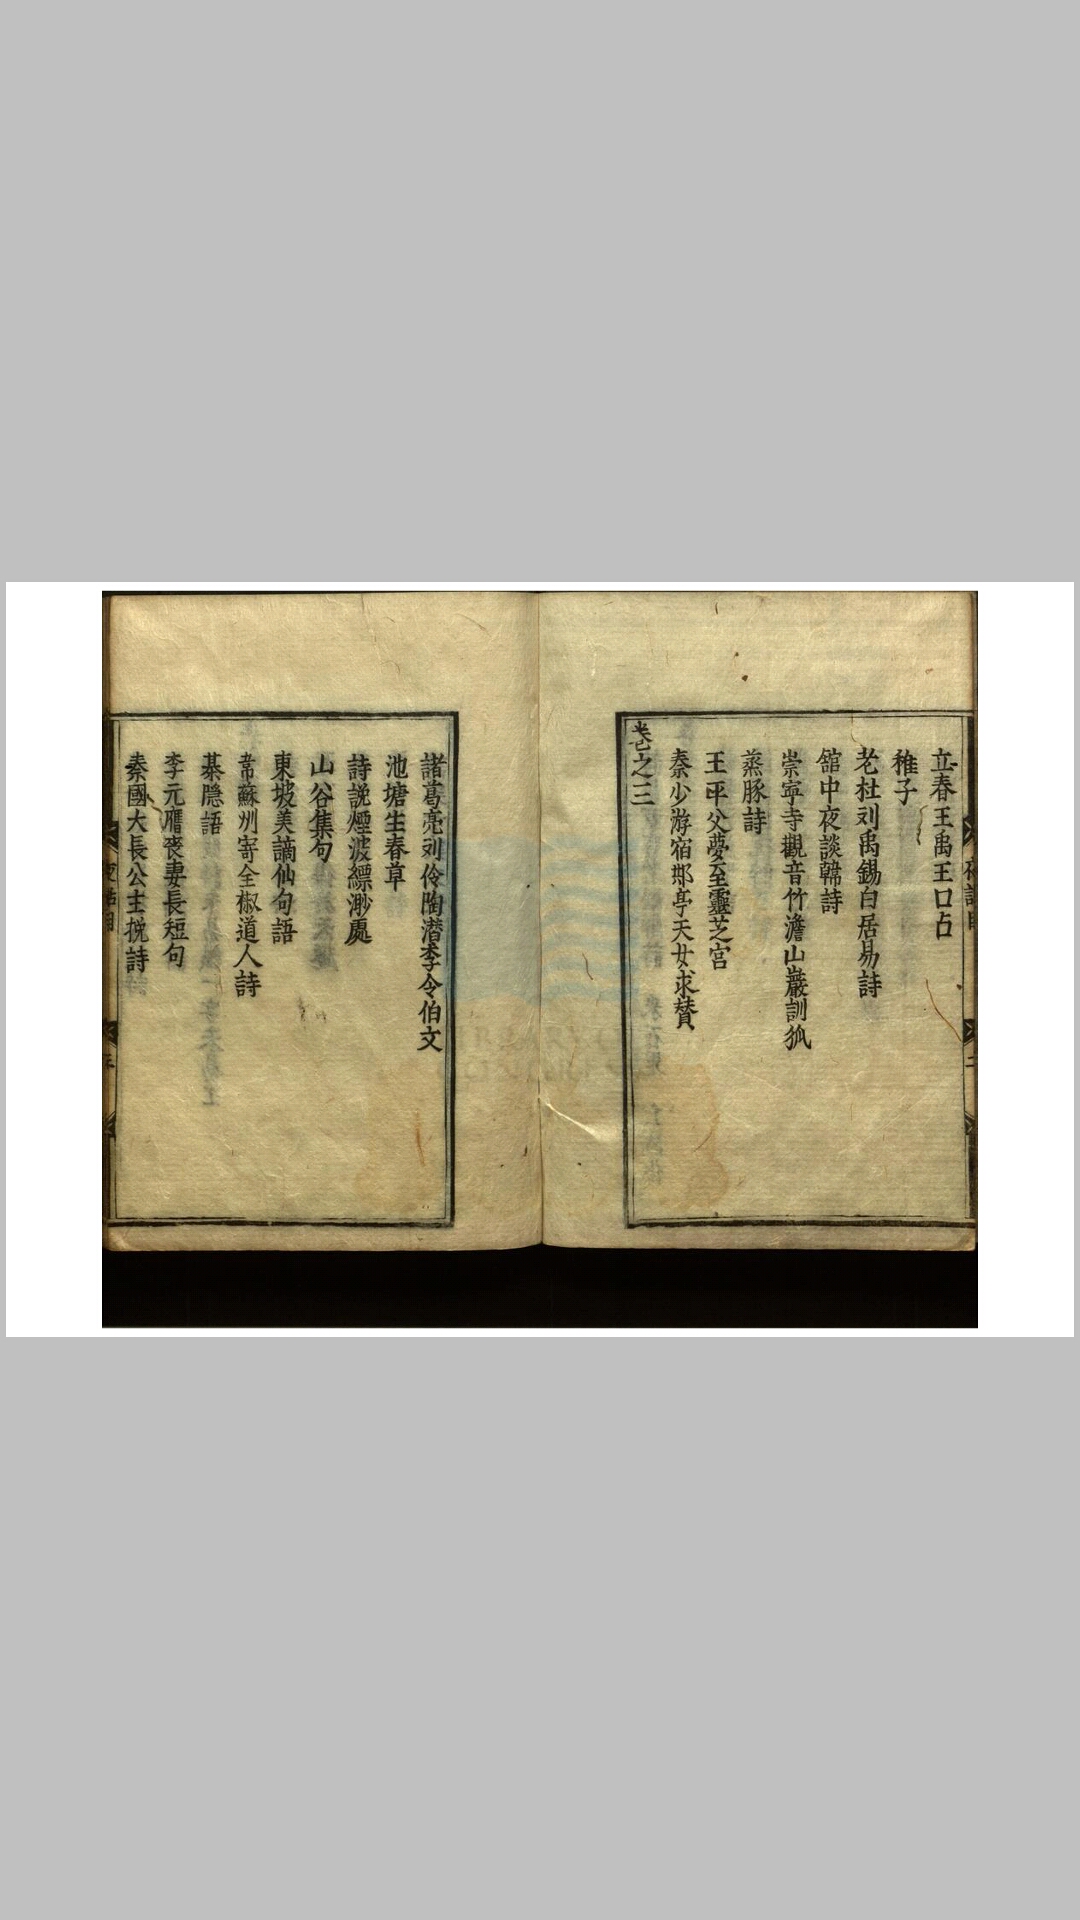 立春王禹王口占
稚子
老杜刘禹錫白居易詩
舘中夜談韓詩
崇寜寺觀音竹澹山巖訓狐
蒸豚詩
王平父夢至靈芝宮
秦少游宿䣊亭天女求賛
卷之三
諸葛亮刘伶陶潜李令伯文
池塘生春草
詩說煙波縹渺處
山谷集句
東坡美謫仙句語
常蘇州寄全椒道人詩
棊隱語
李元膺䘮妻長短句
秦國大長公主挽詩